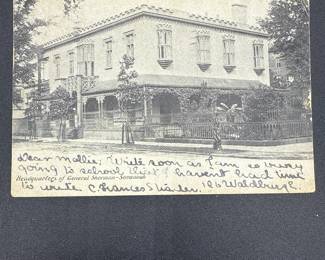 Dear Mollie, Write soon as I am so very
going to school that I havent had time
Headquarters of General Sherman-Savannah
to write Frances 126 Waldburg